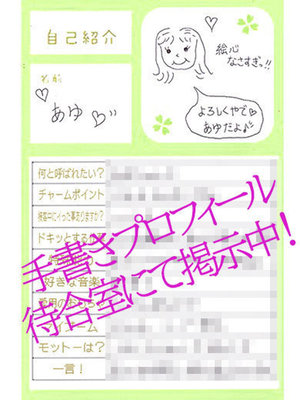 自己紹介
絵心
なさすぎっ!!
名前
♡あゆ♡
よろしくやで
あゆだよ♪
何と呼ばれたい?
チャームポイント
接客中にイった事ありますか?
ドキッとする
手書きプロフィール
待合室にて掲示中!
好きな音楽
マイブーム
モットーは?
一言!